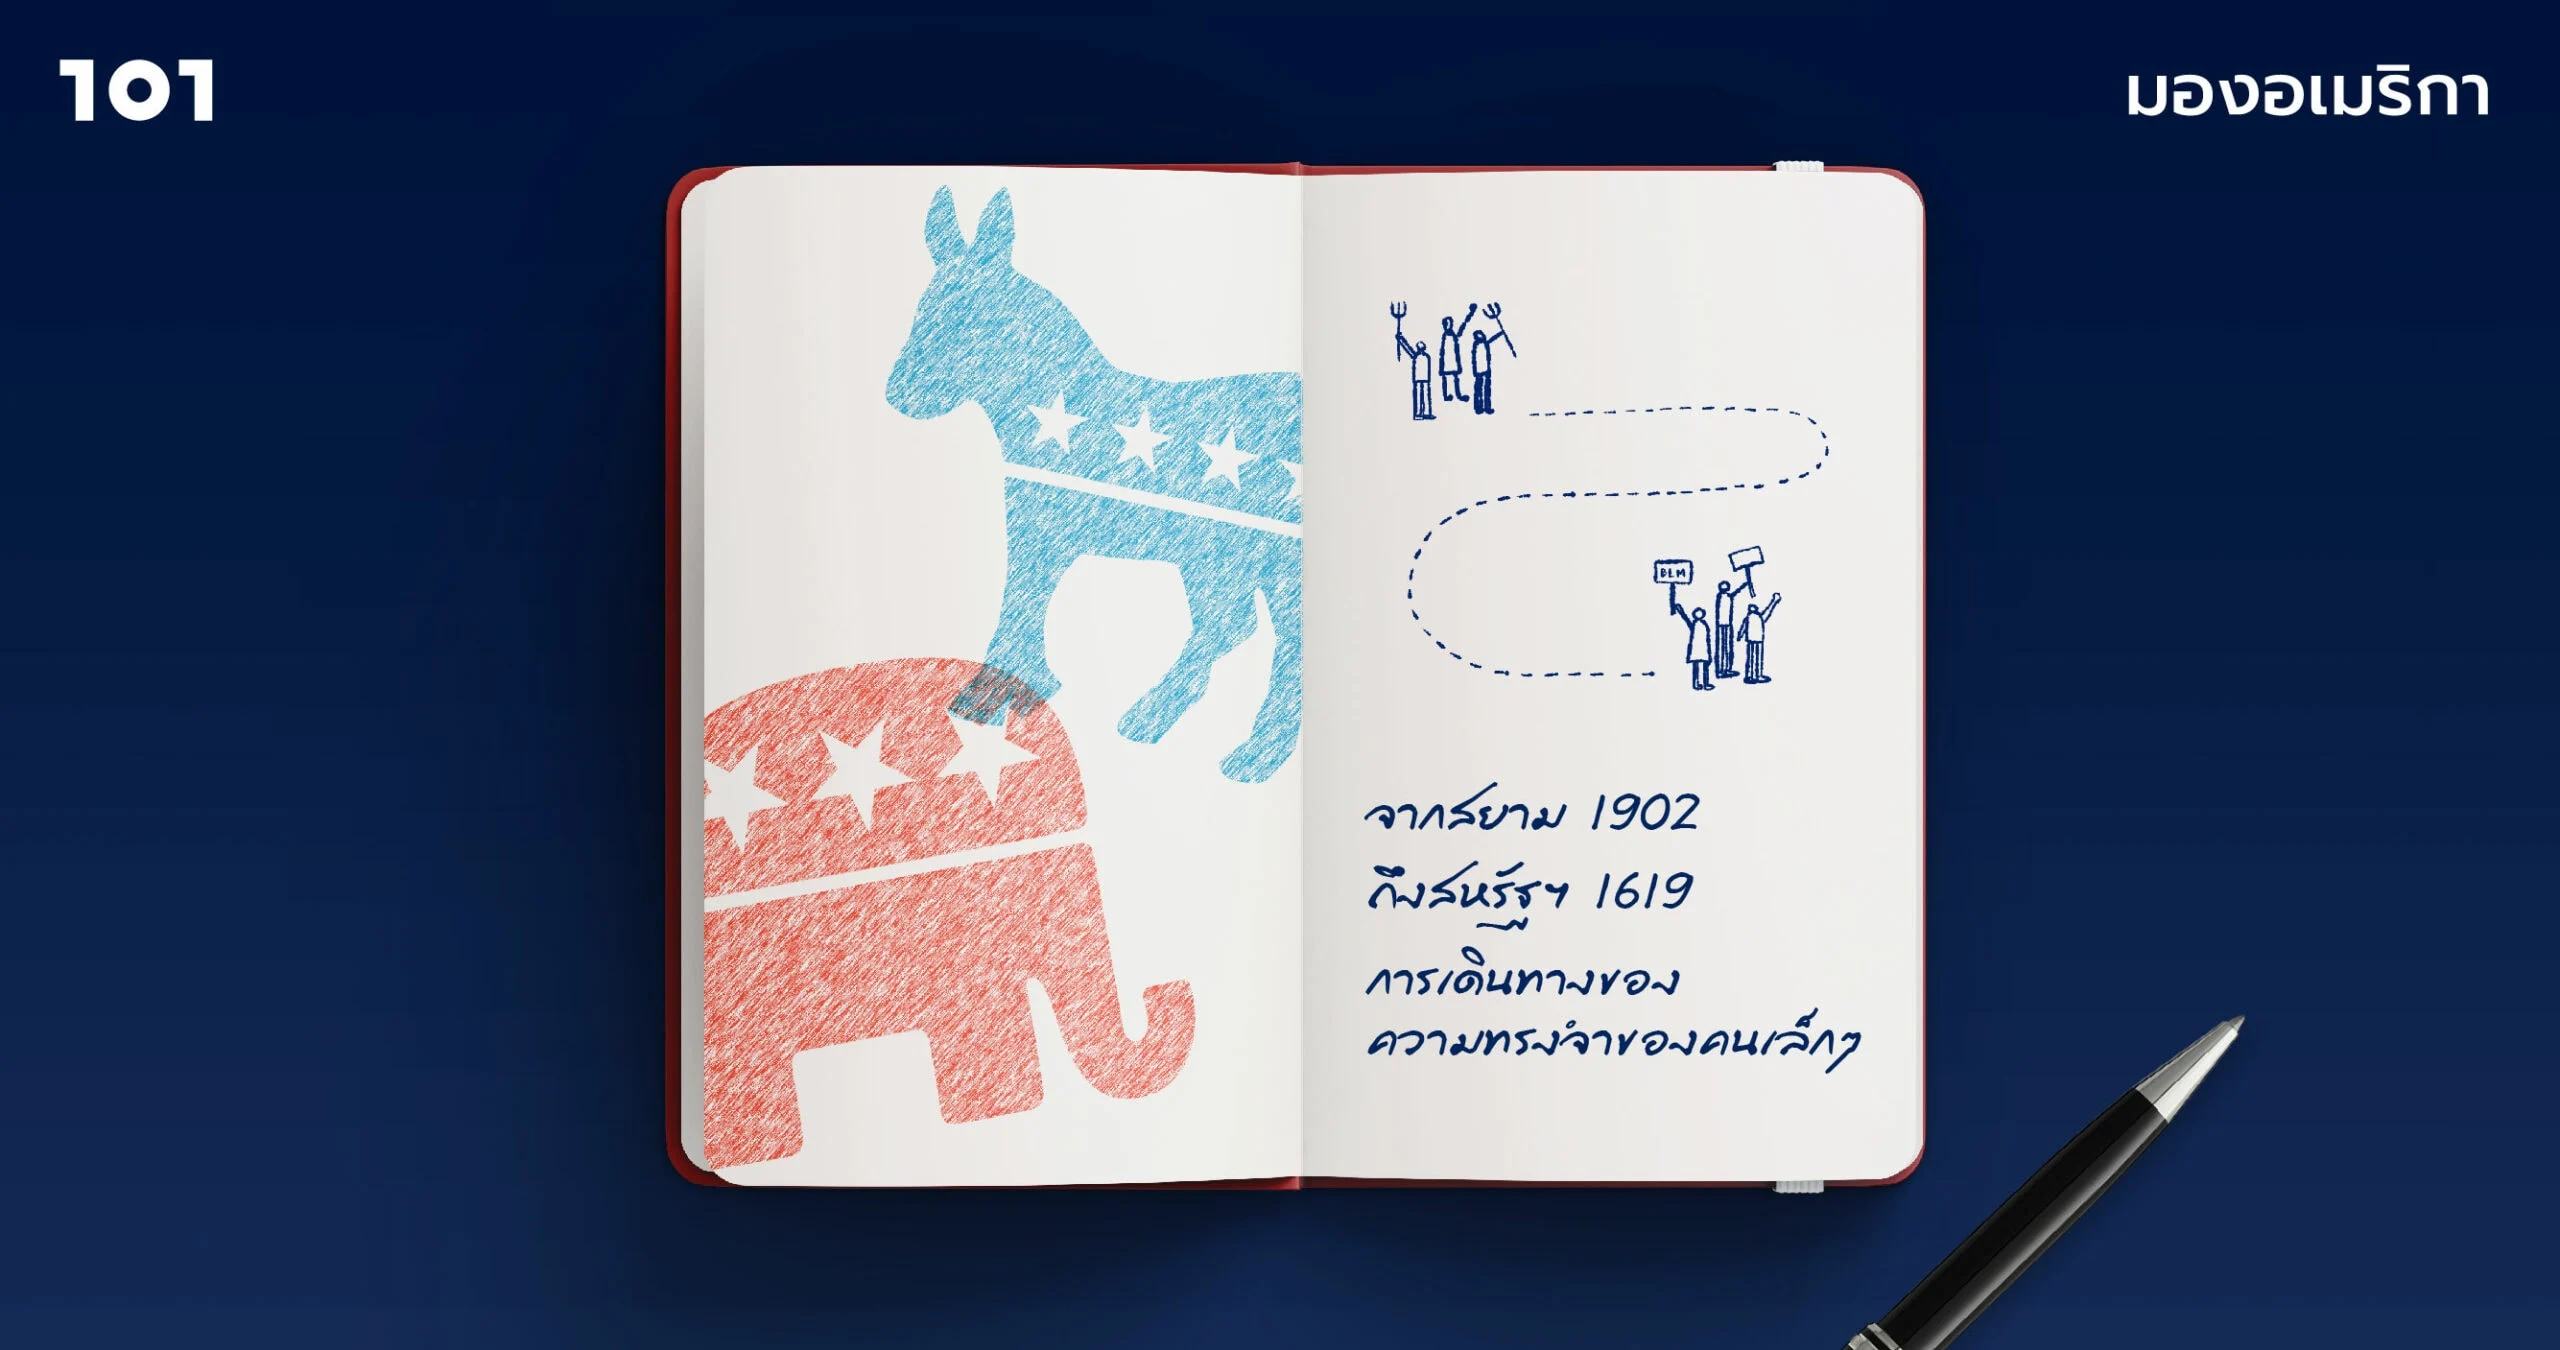 101
มองอเมริกา
BLM
จากสยาม 1902
ถึงสหรัฐฯ 1619
การเดินทางของ
ความทรงจำของคนเล็กๆ